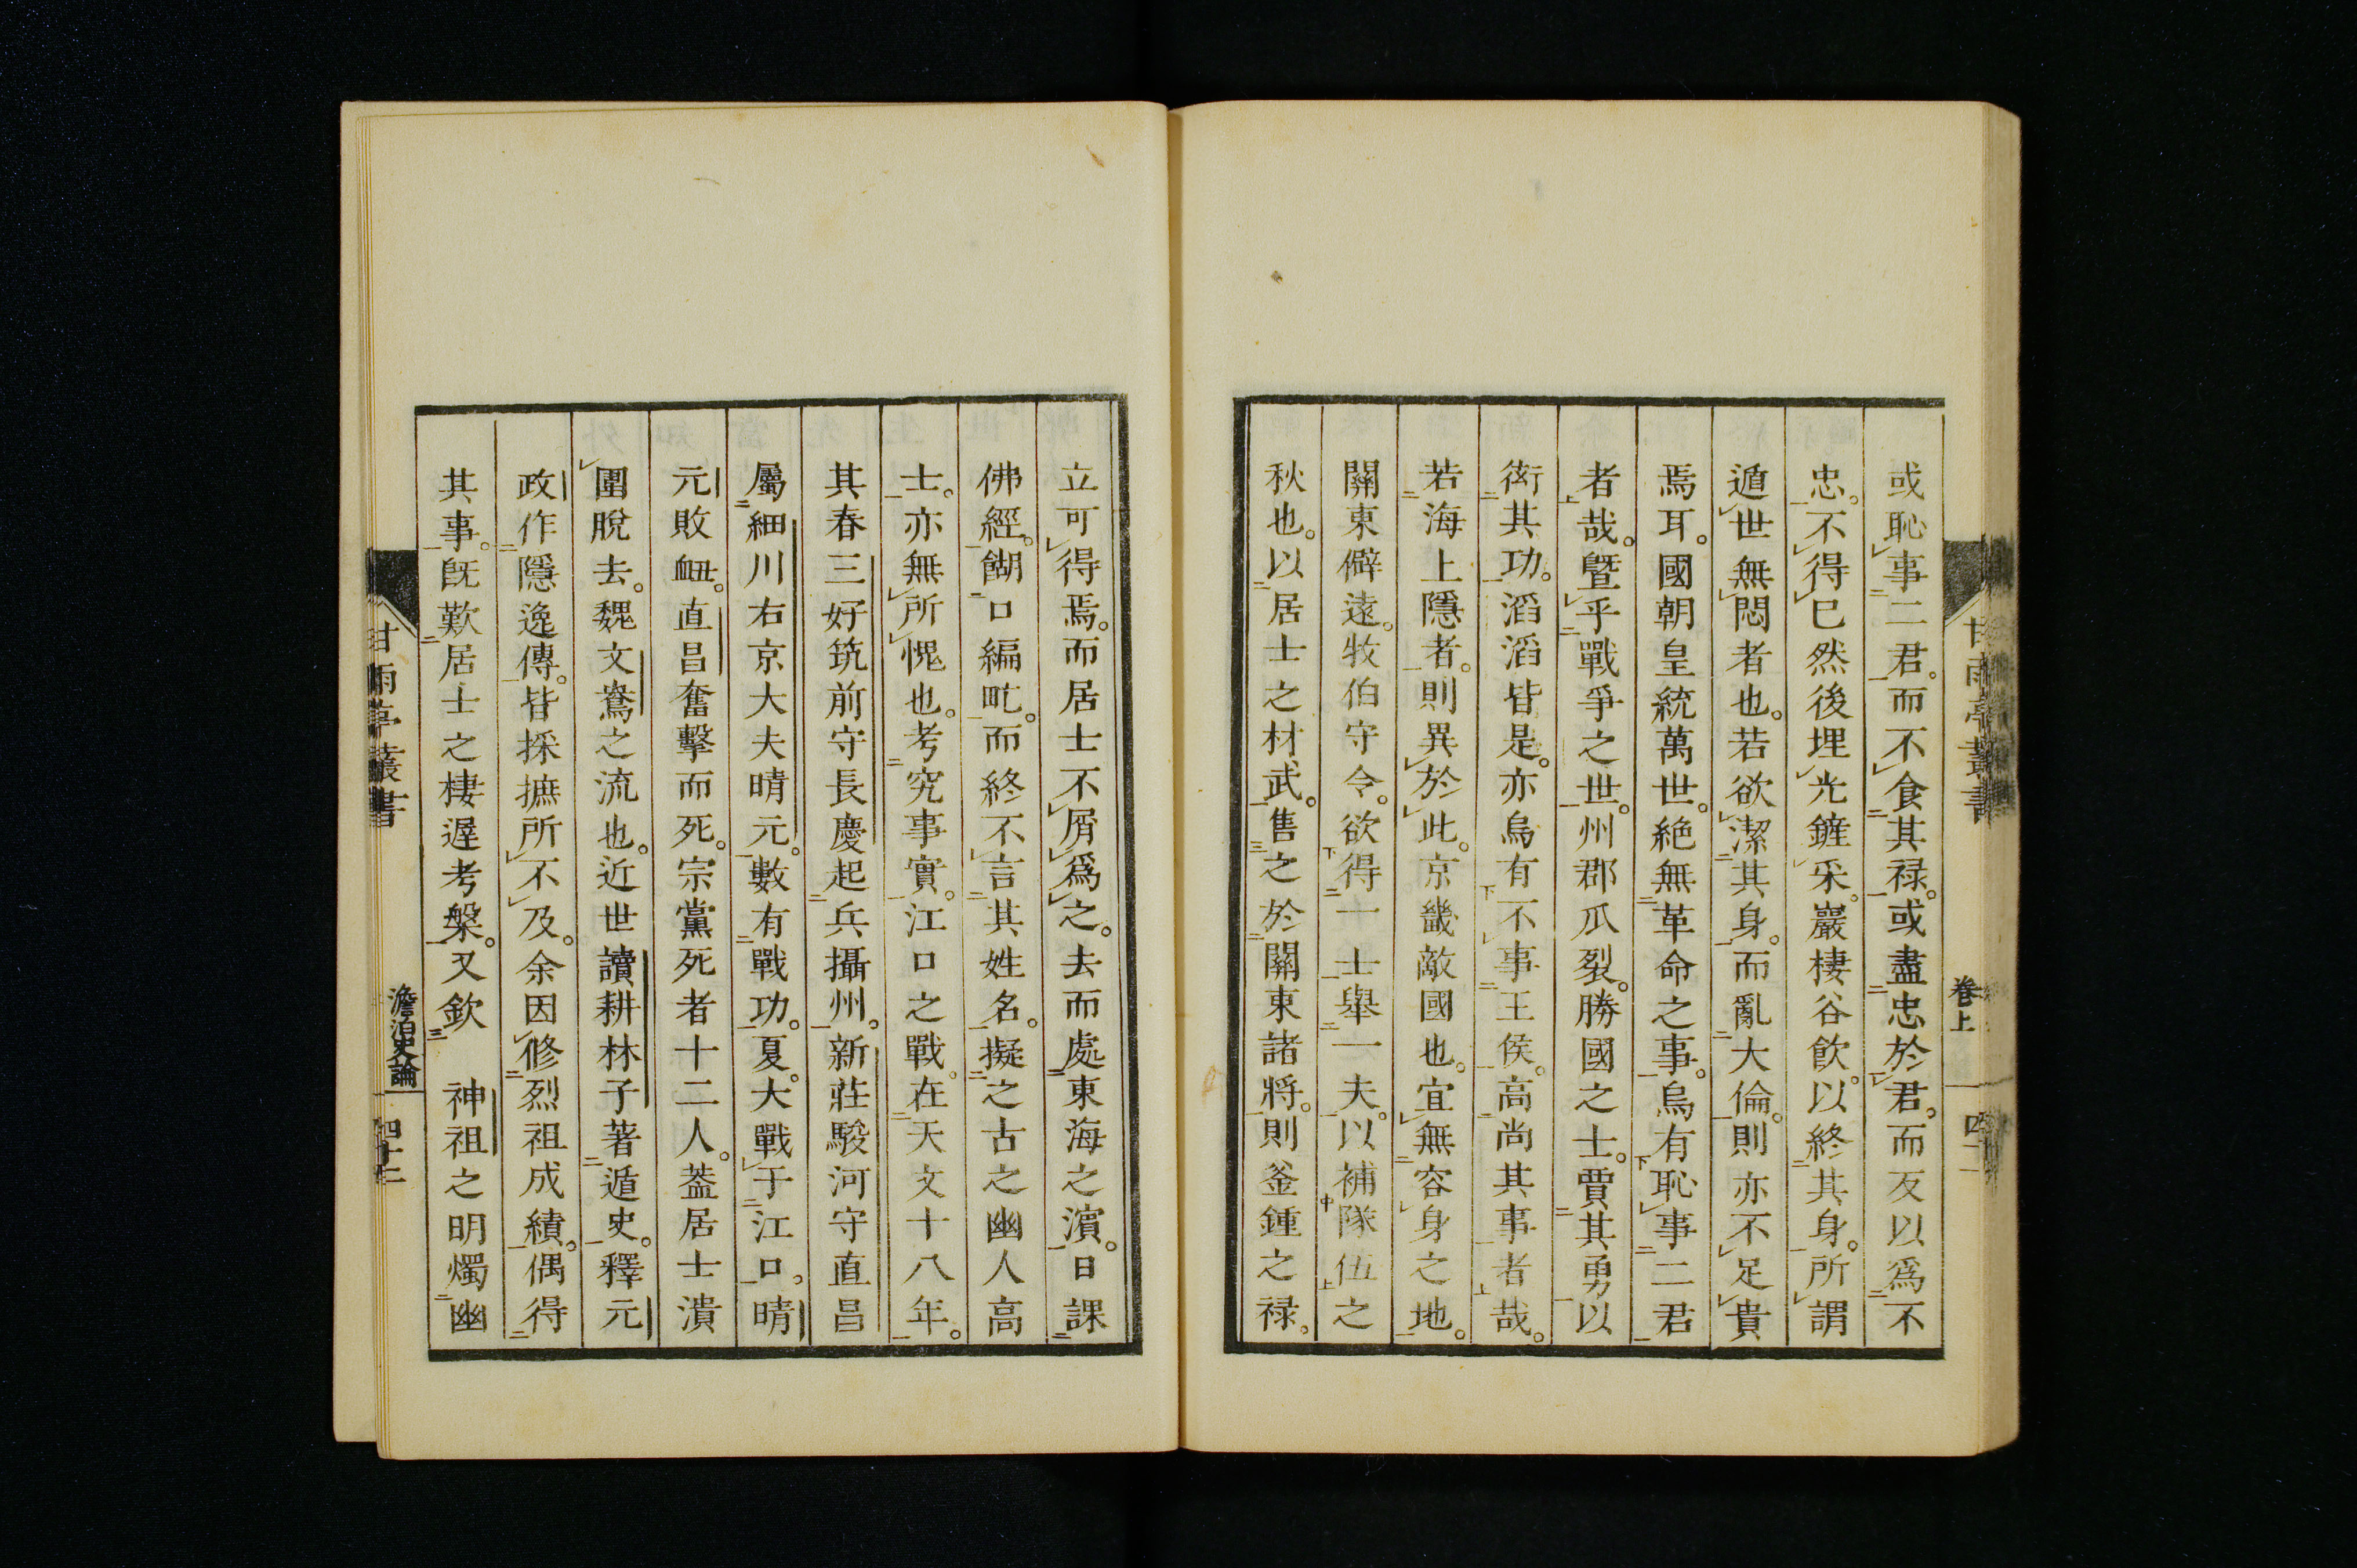 或恥事二君。而不食其禄。或盡忠於君。而反以爲不
忠。不得已然後埋光鏟采。巖棲谷飮。以終其身。所謂
遁世無悶者也。若欲潔其身。而亂大倫。則亦不足貴
焉耳。國朝皇統萬世。絶無革命之事。烏有恥事二君
者哉。曁乎戰爭之世。州郡瓜裂。勝國之士。賈其勇以
衒其功。滔滔皆是。亦烏有不事王侯。高尚其事者哉。
若海上隱者。則異於此。京畿敵國也。宜無容身之地。
關東僻遠。牧伯守令。欲得十士擧一夫。以補隊伍之
秋也。以居士之材武。售之於關東諸將。則釜鍾之禄。
甘雨亭叢書
卷上
立可得焉。而居士不屑爲之。去而處東海之濵。日課
佛經。餬口編甿。而終不言其姓名。擬之古之幽人高
士。亦無所愧也。考究事實。江口之戰。在天文十八年。
其春三好筑前守長慶起兵攝州。新莊駿河守直昌
屬細川右京大夫晴元。數有戰功。夏。大戰于江口。晴
元敗衄。直昌奮擊而死。宗黨死者十二人。葢居士潰
圍脫去。魏文鴦之流也。近世讀耕林子著遁史。釋元
政作隱逸傳。皆採摭所不及。余因修烈祖成績。偶得
其事。旣歎居士之棲遲考槃。又欽 神祖之明燭幽
甘雨亭叢書
澹泊史論
四十二